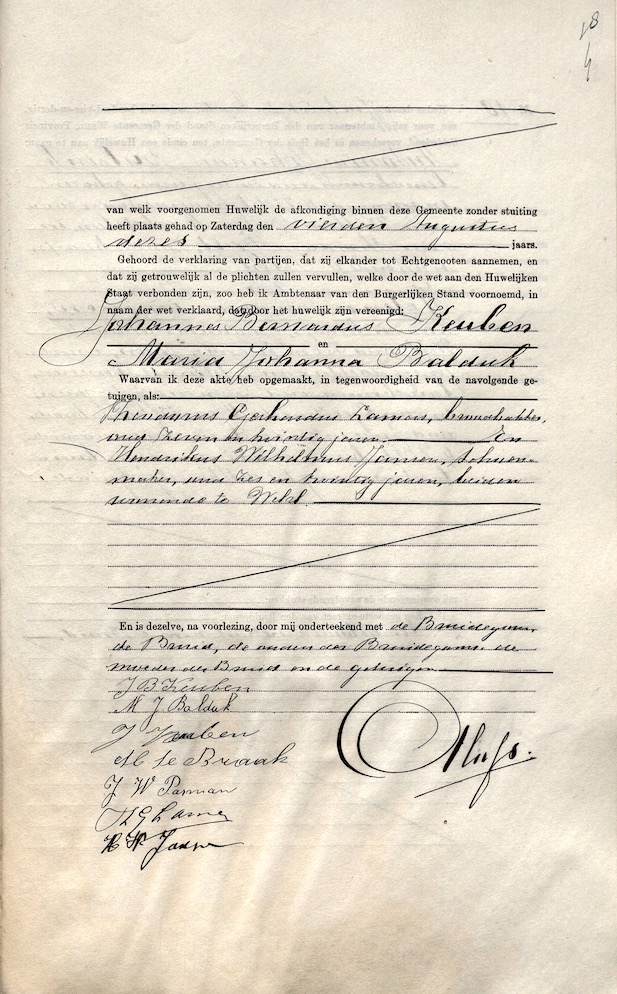 18
van welk voorgenomen Huwelijk de afkondiging binnen deze Gemeente zonder stuiting
heeft plaats gehad op Zaterdag den vierden Augustus
dezes jaars.
Gehoord de verklaring van partijen, dat zij elkander tot Echtgenooten aannemen, en
dat zij getrouwelijk al de plichten zullen vervullen, welke door de wet aan den Huwelijken
Staat verbonden zijn, zoo heb ik Ambtenaar van den Burgerlijken Stand voornoemd, in
naam der wet verklaard, dat door het huwelijk zijn vereenigd:
Johannes Bernardus Keuben
en
Maria Johanna Balduk
Waarvan ik deze akte heb opgemaakt, in tegenwoordigheid van de navolgende ge-
tuigen, als:
Theodorus Gerhardus Lamers, broodbakker,
oud zeven en twintig jaren. En
Hendrikus Wilhelmus Jansen, schoen-
maker, oud zes en twintig jaren, beiden
wonende te Wehl.
En is dezelve, na voorlezing, door mij onderteekend met de Bruidegom,
de Bruid, de ouders des Bruidegoms de
moeder der Bruid en de getuigen
J B Keuben
M J Balduk
J Keuben
te Braak
J W Parman
H W Janse